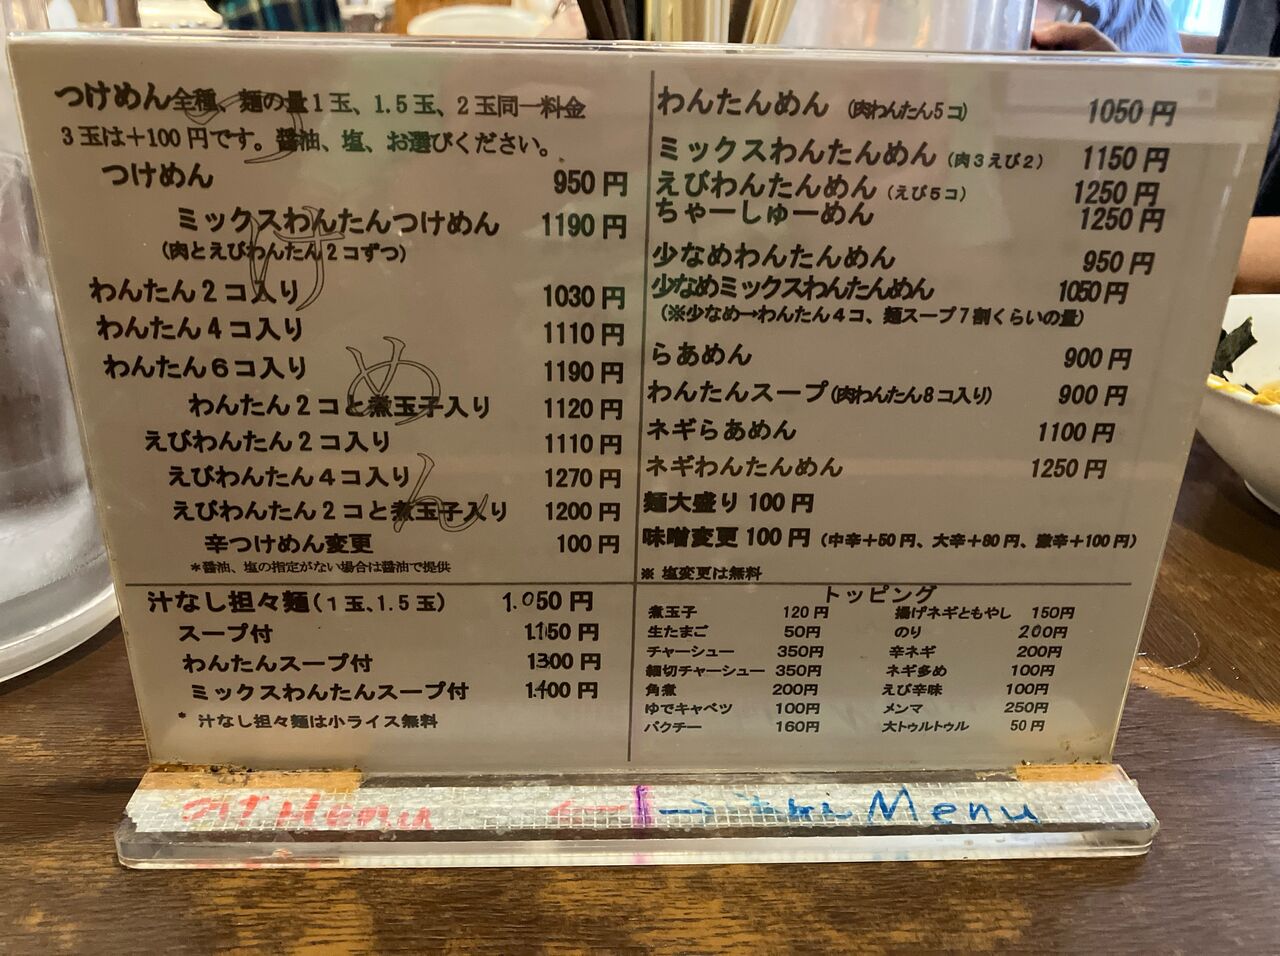 つけめん全種、麺の量1玉、1.5玉、2玉同一料金
3玉は＋100円です。醤油、塩、お選びください。
つけめん 950円
ミックスわんたんつけめん 1190円
（肉とえびわんたん2コずつ）
わんたん2コ入り 1030円
わんたん4コ入り 1110円
わんたん6コ入り 1190円
わんたん2コと煮玉子入り 1120円
えびわんたん2コ入り 1110円
えびわんたん4コ入り 1270円
えびわんたん2コと煮玉子入り 1200円
辛つけめん変更 100円
＊醤油、塩の指定がない場合は醤油で提供
つけめん
わんたんめん（肉わんたん5コ） 1050円
ミックスわんたんめん（肉3えび2） 1150円
えびわんたんめん（えび5コ） 1250円
ちゃーしゅーめん 1250円
少なめわんたんめん 950円
少なめミックスわんたんめん 1050円
（※少なめ→わんたん4コ、麺スープ7割くらいの量）
らあめん 900円
わんたんスープ（肉わんたん8コ入り） 900円
ネギらあめん 1100円
ネギわんたんめん 1250円
麺大盛り 100円
味噌変更 100円（中辛＋50円、大辛＋80円、激辛＋100円）
※ 塩変更は無料
汁なし担々麺（1玉、1.5玉） 1.050円
スープ付 1150円
わんたんスープ付 1300円
ミックスわんたんスープ付 1.400円
* 汁なし担々麺は小ライス無料
トッピング
煮玉子 120円 揚げネギともやし 150円
生たまご 50円 のり 200円
チャーシュー 350円 辛ネギ 200円
細切チャーシュー 350円 ネギ多め 100円
角煮 200円 えび辛味 100円
ゆでキャベツ 100円 メンマ 250円
パクチー 160円 大トゥルトゥル 50円
つけ Menu ← → Menu